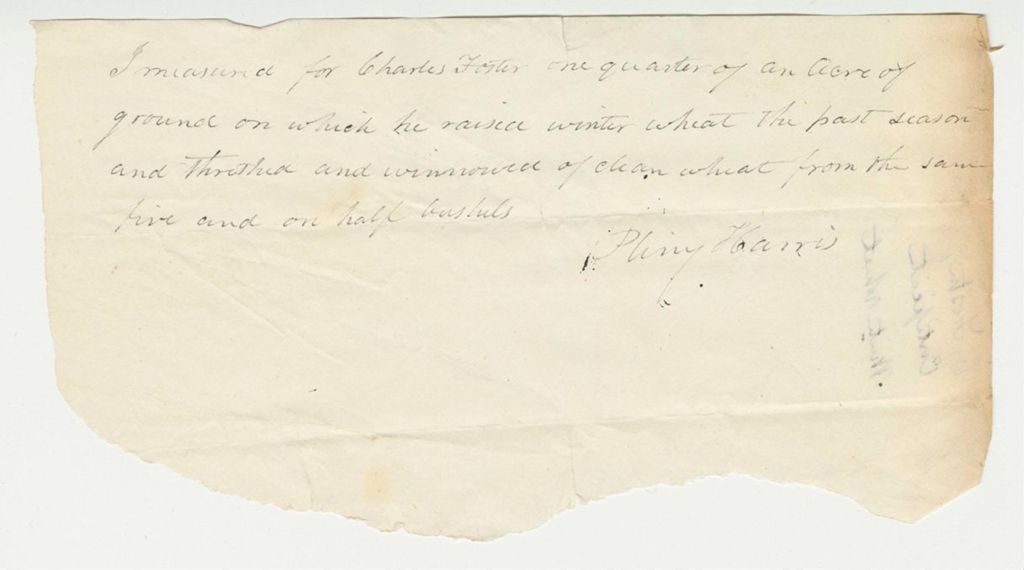 I measured for Charles Foster one quarter of an Acre of
ground on which he raised winter wheat the past season
and threshed and winnowed of clean wheat from the same
five and on half bushels
Pliny Harris